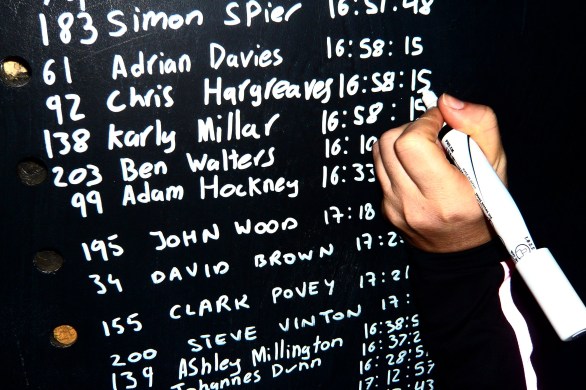 183 Simon Spier 16:57:48
61 Adrian Davies 16:58:15
92 Chris Hargreaves 16:58:15
138 Karly Millar 16:58:15
203 Ben Walters 16:10
99 Adam Hockney 16:33
195 JOHN WOOD 17:18
34 DAVID BROWN 17:2
155 CLARK POVEY 17:21
200 STEVE VINTON 17:
139 Ashley Millington 16:38:5
Johannes Dunn 16:37:2
16:28:5
17:12:57